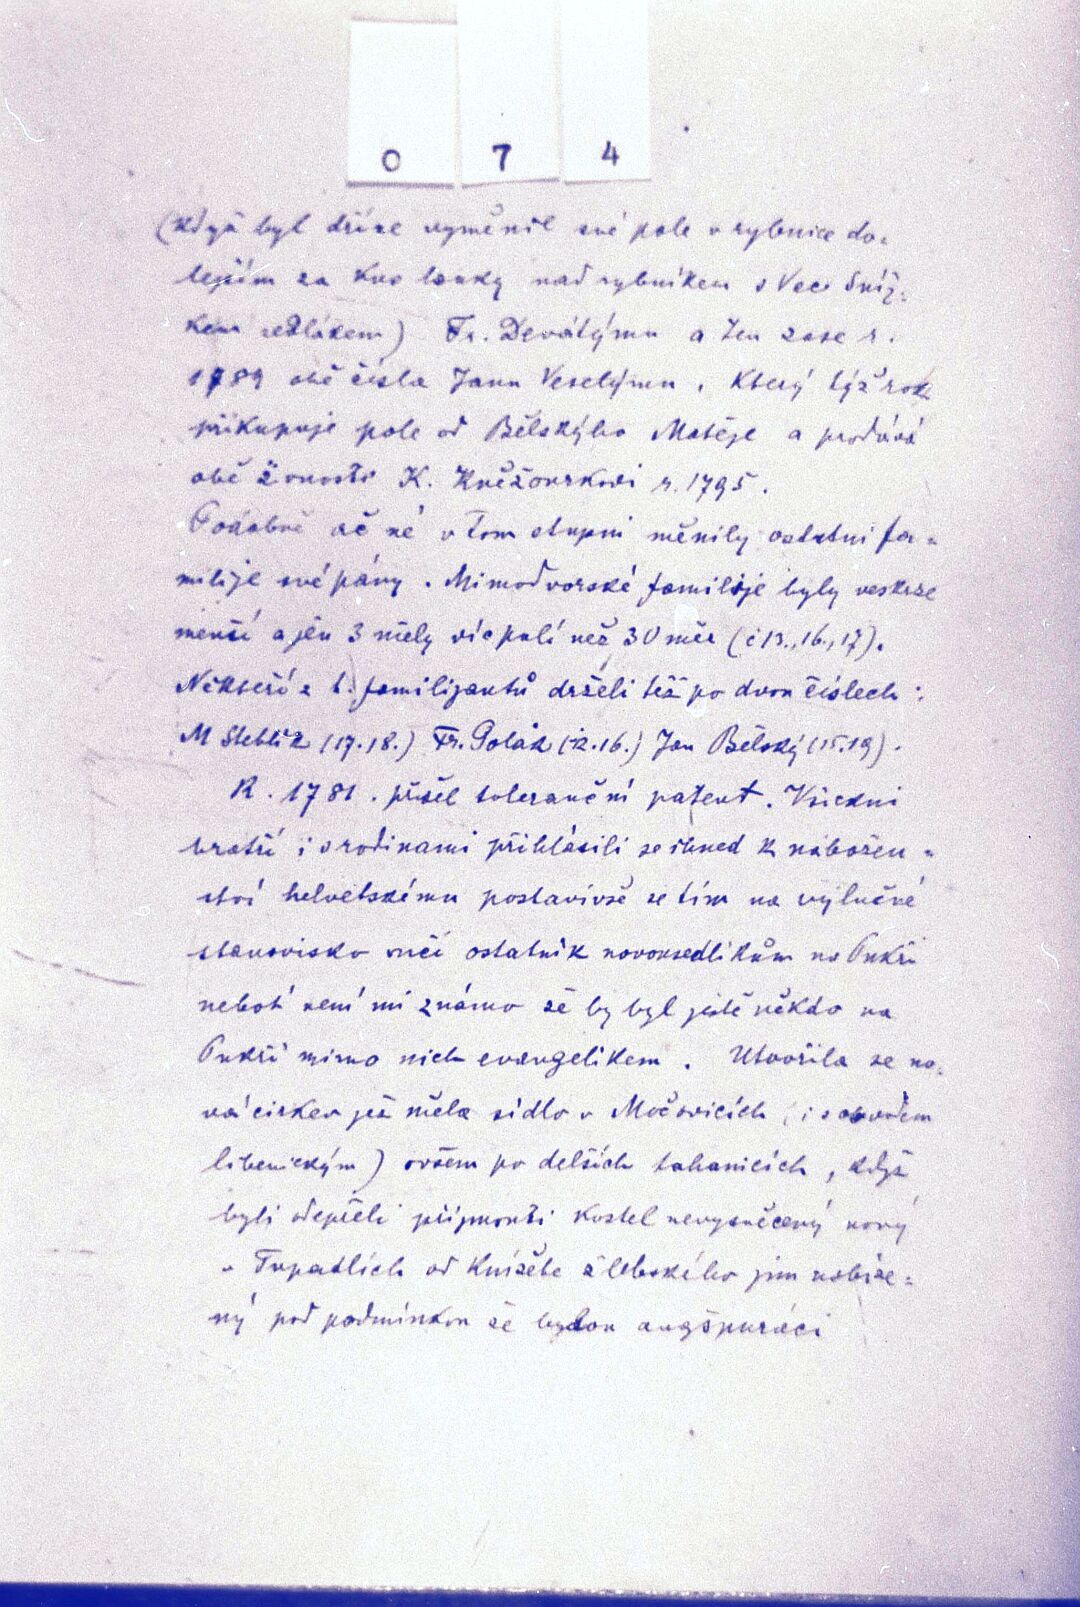 0 7 4
(když byl dříve vyměnil své pole v rybnice do-
lejším za kus louky nad rybníkem s Vec. Sníž-
kem sedlákem) Fr. Devátýmu a ten zase r.
1789 obě čísla Janu Veselýmu, který týž rok
přikupuje pole od Bělského Matěje a prodává
obě živnosti K. Kněžourkovi r. 1795.
Podobně ač né v tom stupni měnily ostatní fa-
milije své pány. Mimodvorské familije byly veskrze
menší a jen 3 měly víc polí než 30 měr (č 13., 16., 17).
Někteří z t. familijantů drželi též po dvou číslech:
M Steblík (17.18.) Fr. Polák (12.16.) Jan Bělský (15.19).
R. 1781. přišel toleranční patent. Všickni
bratří i s rodinami přihlásili se ihned k nábožen-
ství helvetskému postavivše se tím na výlučné
stanovisko vůči ostatník novousedlíkům na Pukři
neboť není mi známo že by byl ještě někdo na
Pukři mimo nich evangelikem. Utvořila se no-
vá církev jež měla sídlo v Močovicích (i s sborem
libenickým) ovšem po delších tahanicích, když
byli odepřeli přijmouti kostel nevysvěcený nový
v Tupadlích od knížete žlebského jim nabíze-
ný pod podmínkou že budou augšpuráci